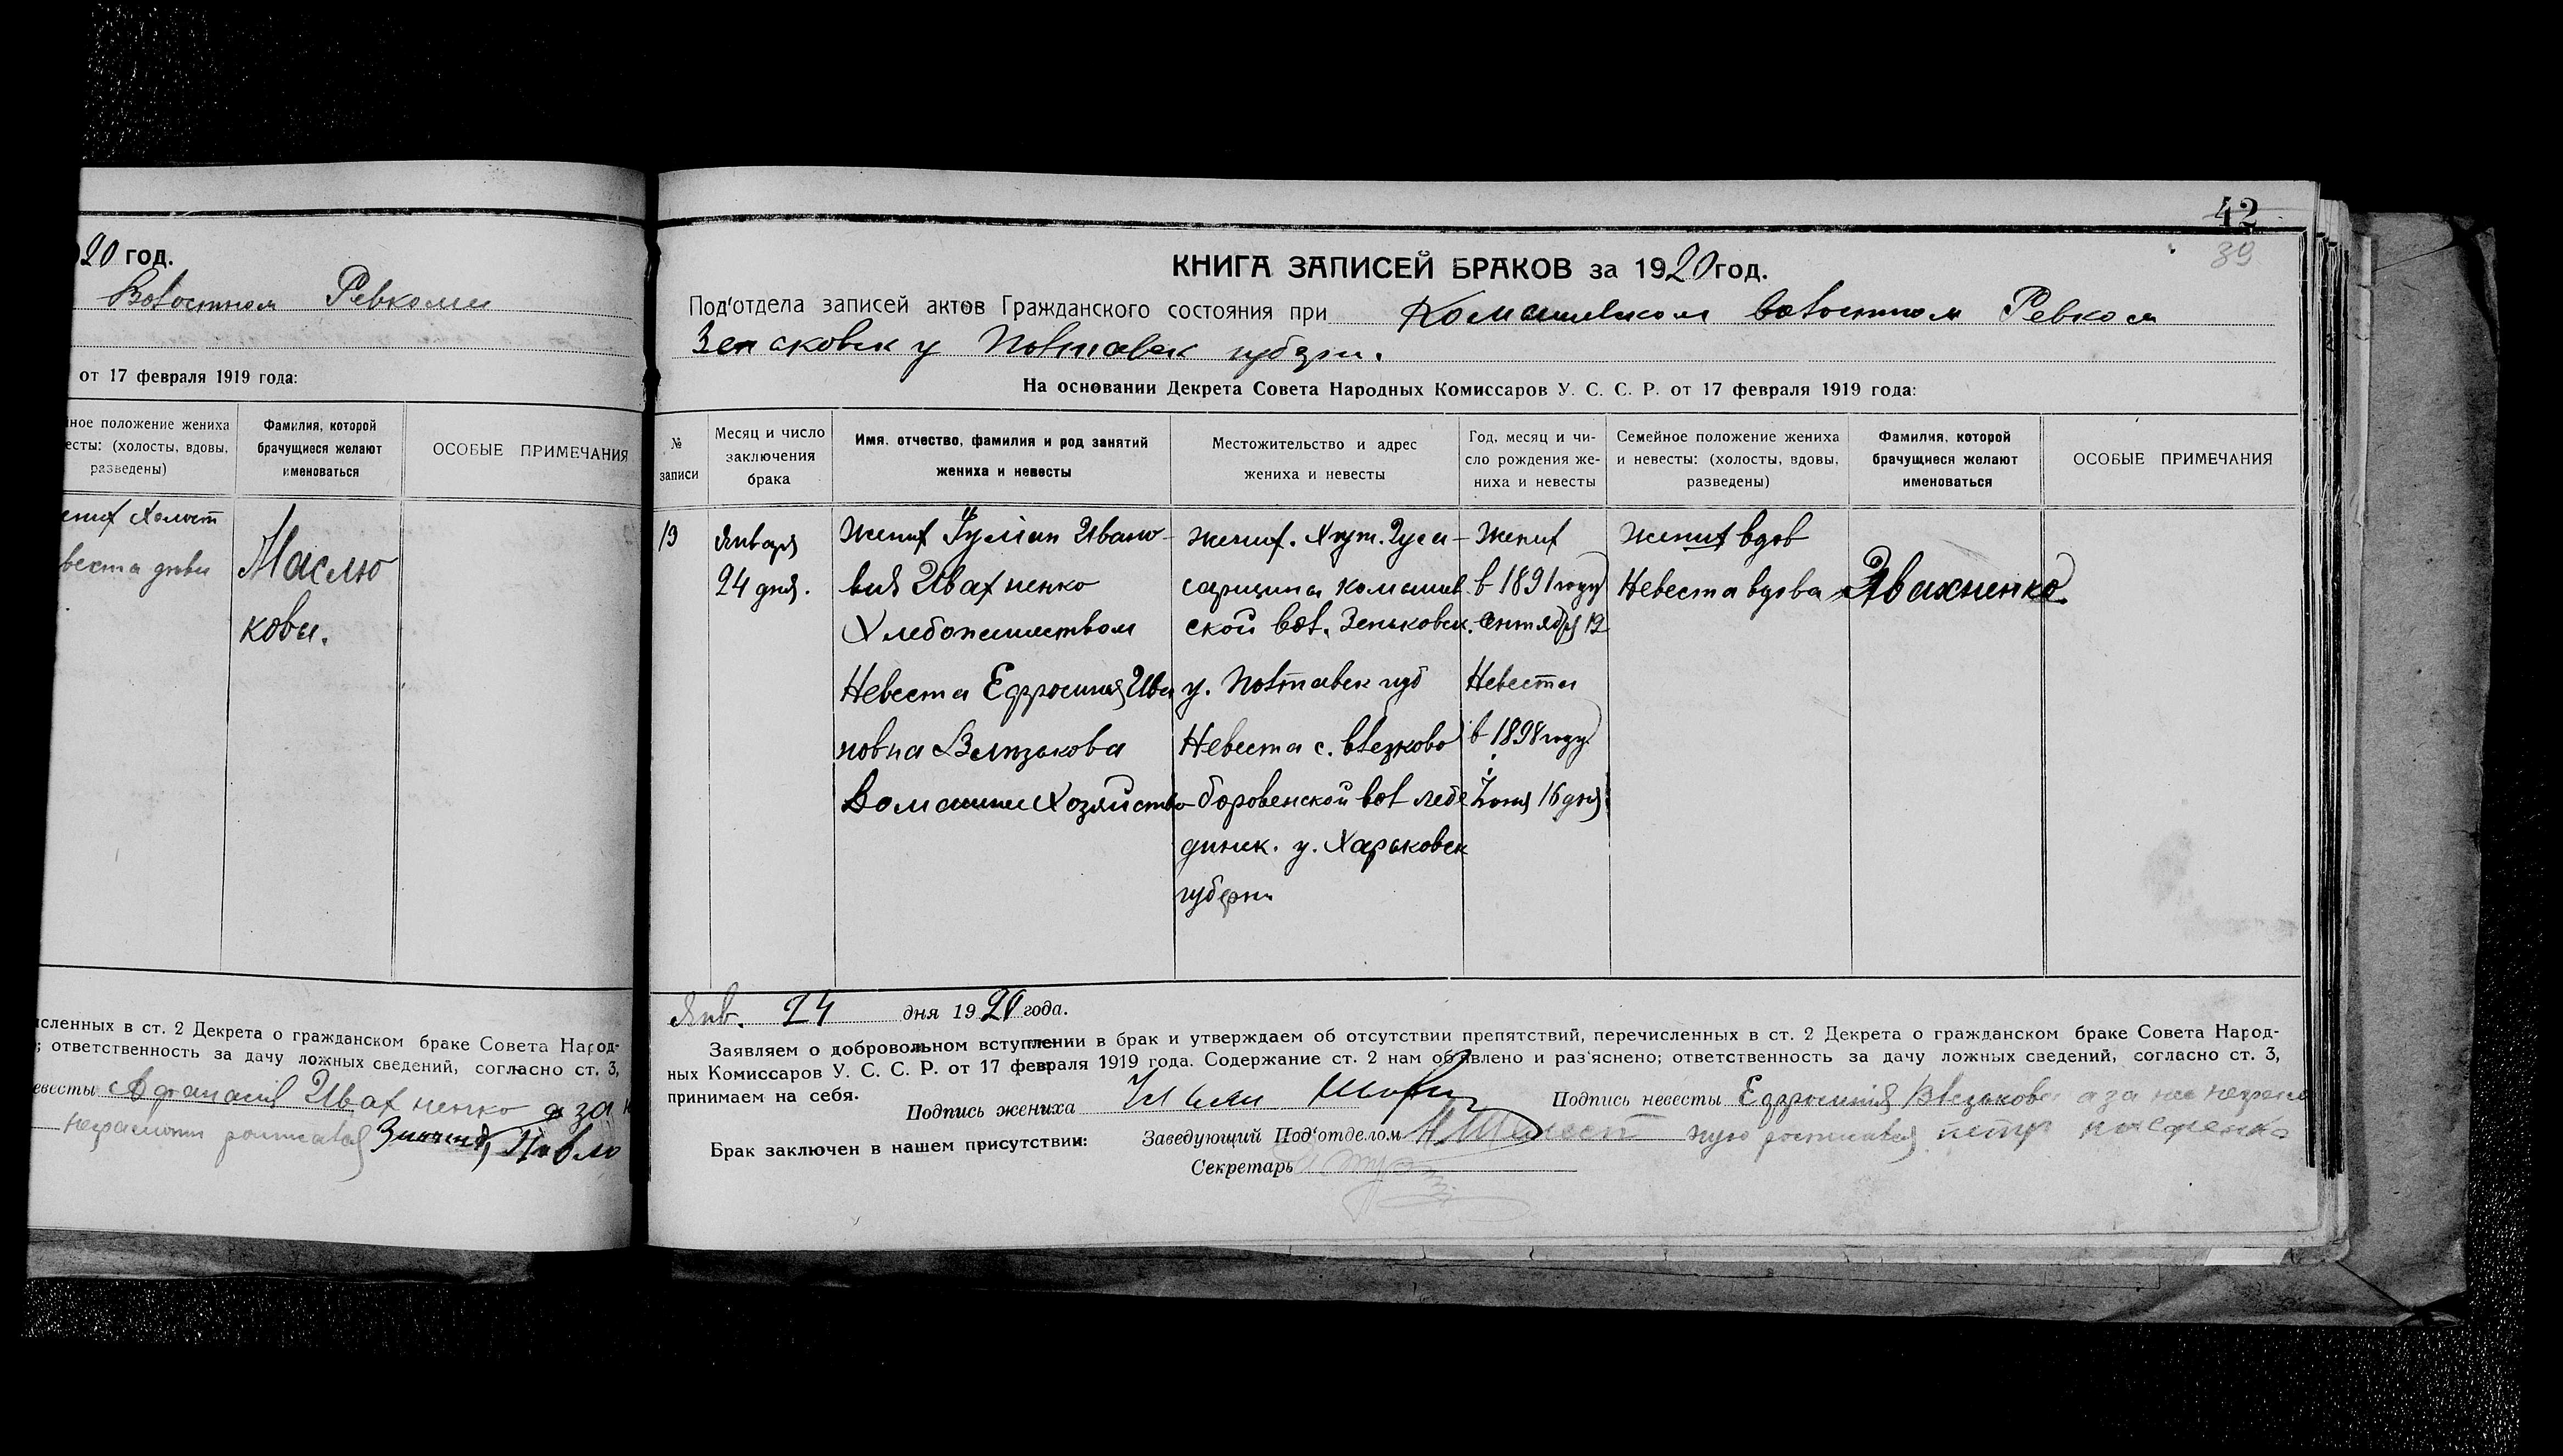 20 год.
Волостном Ревкоми
от 17 февраля 1919 года:
ное положение жениха
есты: (холосты, вдовы,
разведены)
Фамилия, которой
брачущиеся желают
именоваться
ОСОБЫЕ ПРИМЕЧАНИЯ
ених Холост
веста девы
Маслю
ковы.
исленных в ст. 2 Декрета о гражданском браке Совета Народ-
; ответственность за дачу ложных сведений, согласно ст. 3,
евесты Афанасия Ивахненко а за н
неграмотн росписался Павло
42
39
КНИГА ЗАПИСЕЙ БРАКОВ за 1920 год.
Под'отдела записей актов Гражданского состояния при Комышевском волостном Ревком
Зеньковск у Полтавск губерн.
На основании Декрета Совета Народных Комиссаров У. С. С. Р. от 17 февраля 1919 года:
№
записи
Месяц и число
заключения
брака
Имя, отчество, фамилия и род занятий
жениха и невесты
Местожительство и адрес
жениха и невесты
Год, месяц и чи-
сло рождения же-
ниха и невесты
Семейное положение жениха
и невесты: (холосты, вдовы,
разведены)
Фамилия, которой
брачущиеся желают
именоваться
ОСОБЫЕ ПРИМЕЧАНИЯ
13
Января
24 дня.
Жених Іуліан Ивано-
вич Ивахненко
Хлебопашеством
Невеста Ефросиния Ива
новна
Домашнее Хозяйство
Жених. Хут. Гуса-
сарщина комышев
ской вол. Зеньковск.
у. Полтавск губ
Невеста с.
боровенской вол лебе
динск. у. Харьковск
губерн
Жених
в 1891 году
Сентября 12
Невеста
в 1898 году
Іюня 16 дня
Жених вдов
Невеста вдова
Ивахненко
Янв. 24 дня 1920 года.
Заявляем о добровольном вступлении в брак и утверждаем об отсутствии препятствий, перечисленных в ст. 2 Декрета о гражданском браке Совета Народ-
ных Комиссаров У. С. С. Р. от 17 февраля 1919 года. Содержание ст. 2 нам об'явлено и раз'яснено; ответственность за дачу ложных сведений, согласно ст. 3,
принимаем на себя.
Подпись жениха
Подпись невесты Ефросиния а за нее неграмо
Брак заключен в нашем присутствии:
Заведующий Под'отделом Н Шелест
ную росписався петро
Секретарь